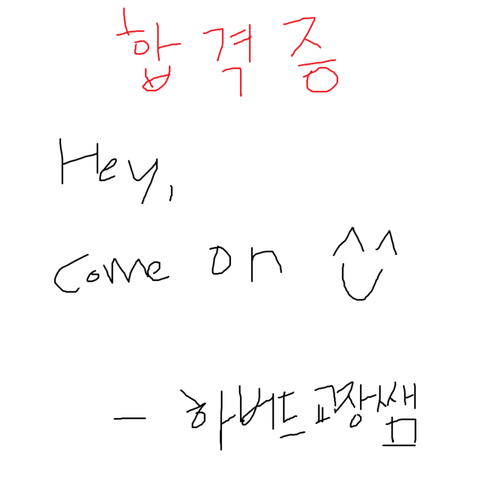 합격증
Hey,
come on ^^
- 하버드 교장쌤